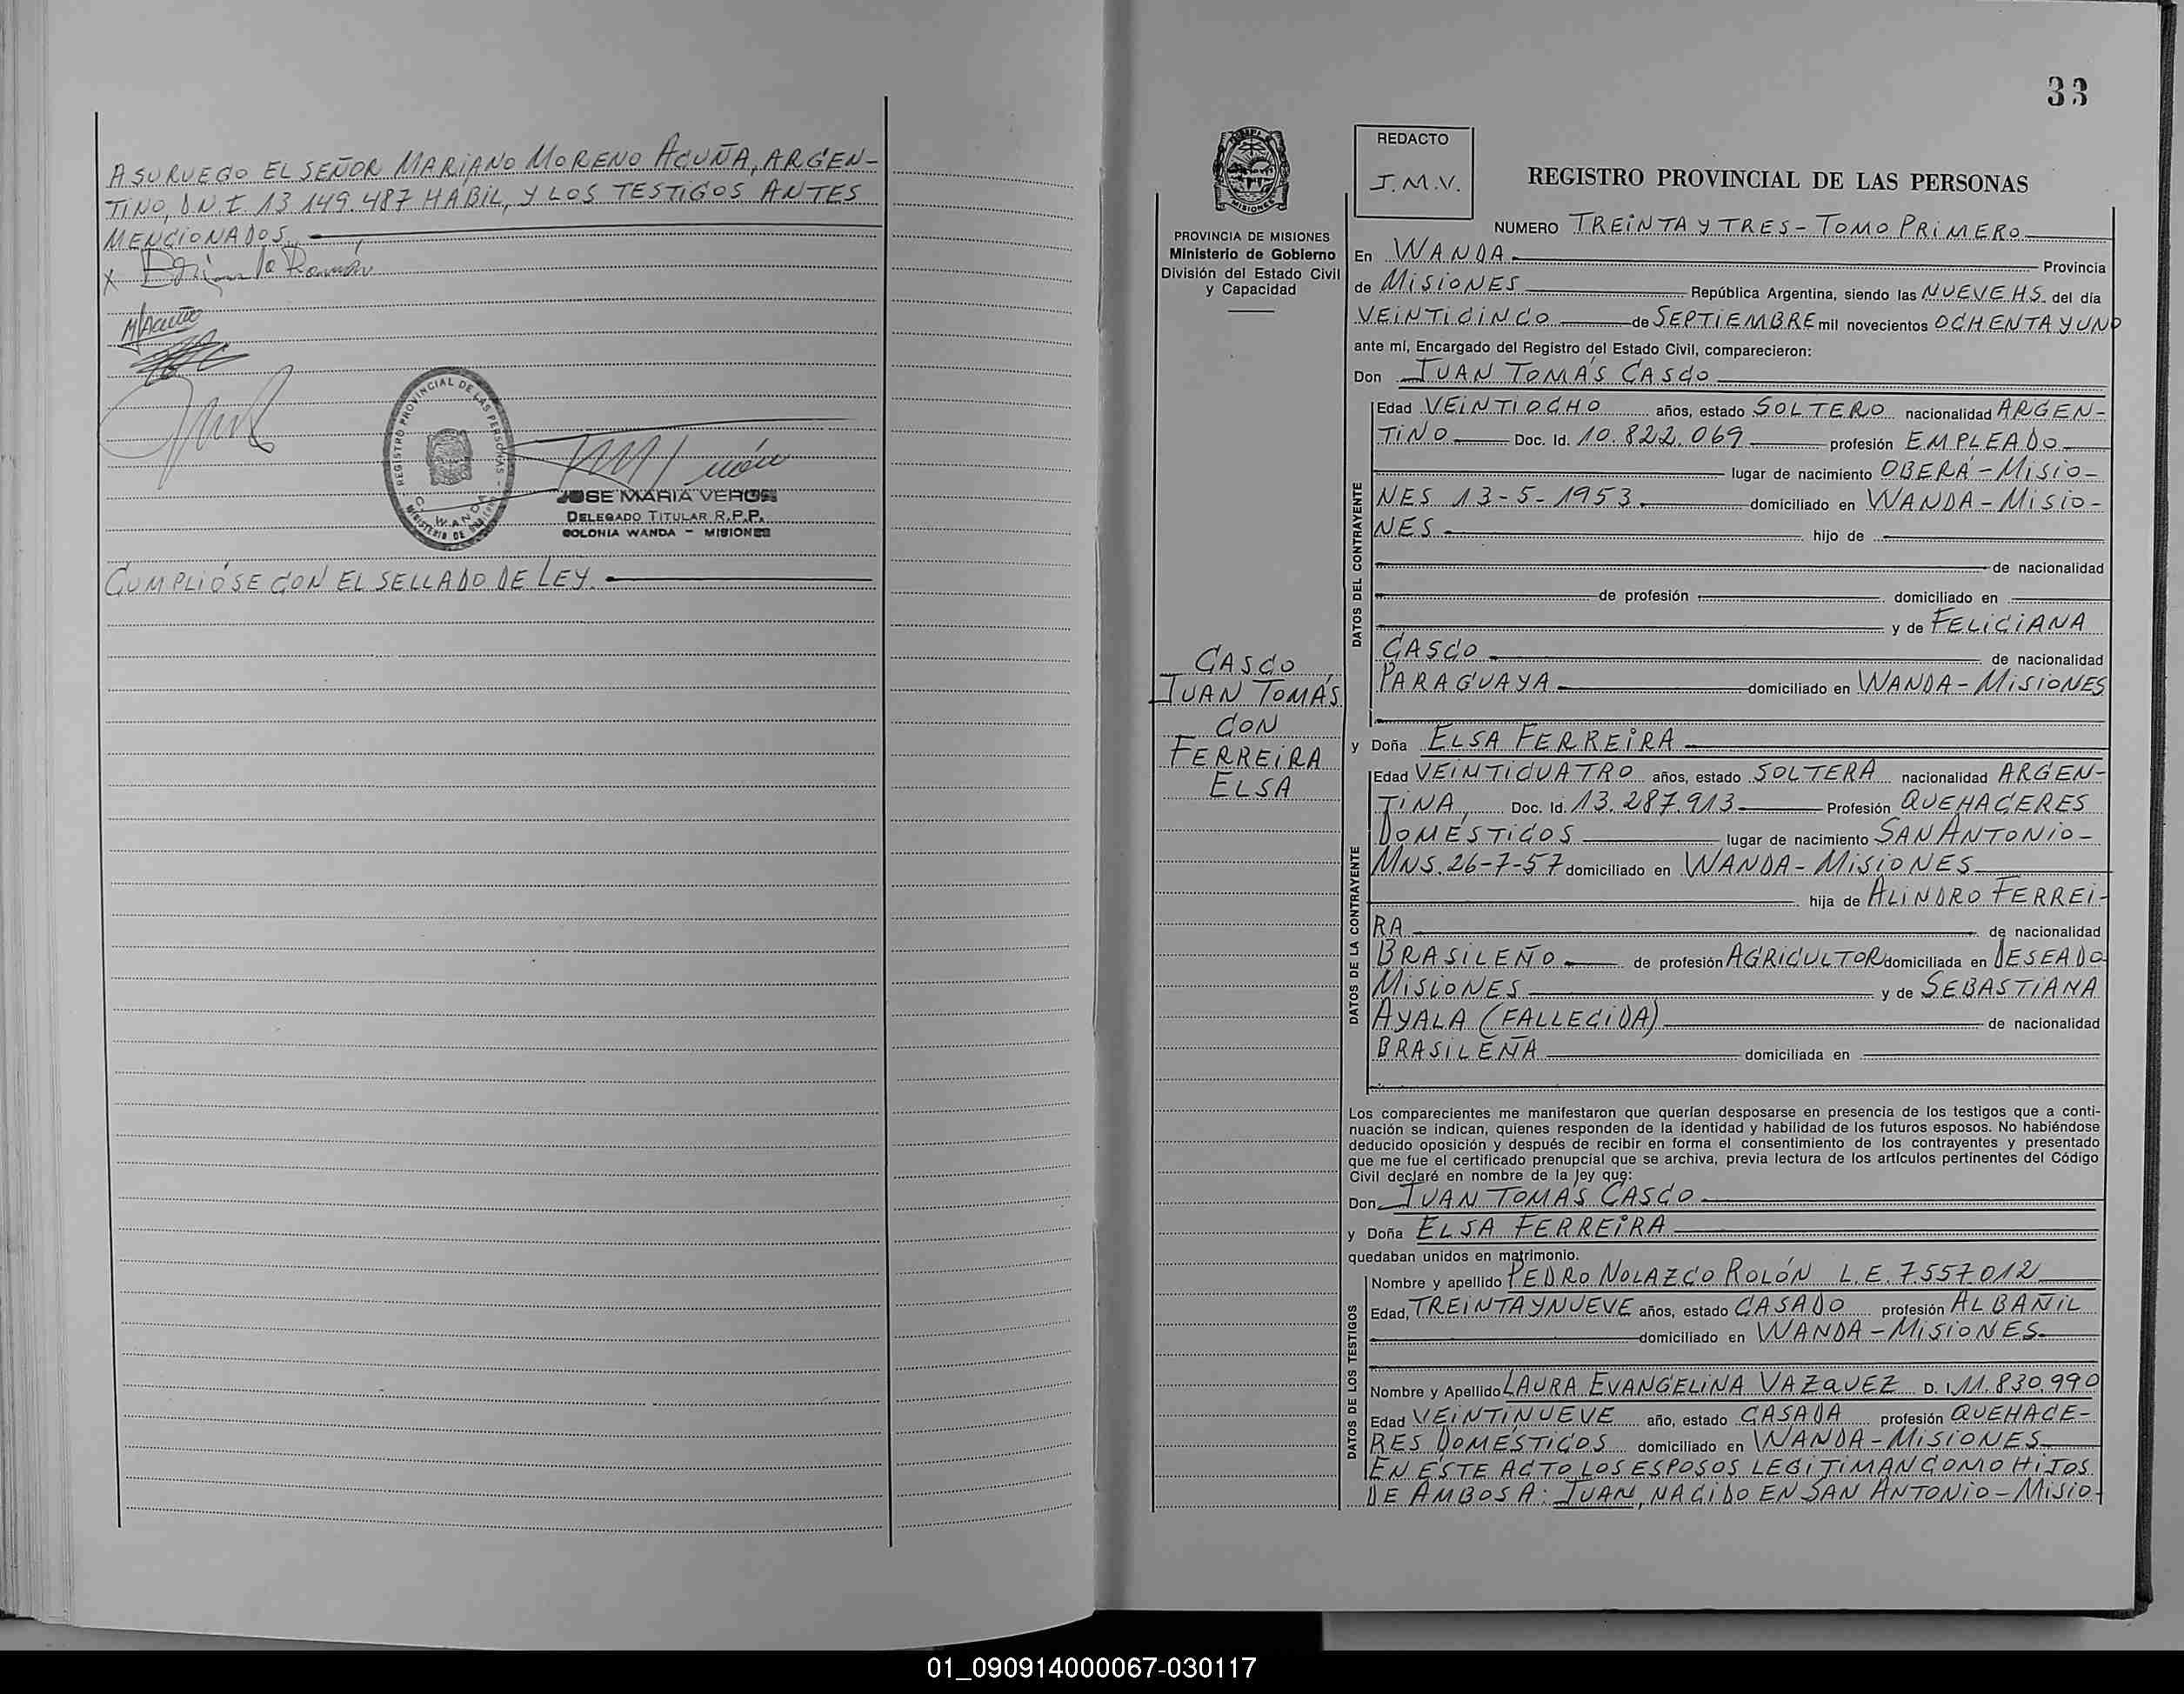 A SU RUEGO EL SEÑOR MARIANO MORENO ACUÑA, ARGEN-
TINO, D.N.I 13.149.487 HABIL, Y LOS TESTIGOS ANTES
MENCIONADOS.
X
MAcuña
REGISTRO PROVINCIAL DE LAS PERSONAS
WANDA
JOSE MARIA VERON
DELEGADO TITULAR R.P.P.
COLONIA WANDA - MISIONES
CUMPLIÓSE CON EL SELLADO DE LEY.
33
MISIONES
PROVINCIA DE MISIONES
Ministerio de Gobierno
División del Estado Civil
y Capacidad
CASCO
JUAN TOMÁS
CON
FERREIRA
ELSA
REDACTO
J.M.V.
REGISTRO PROVINCIAL DE LAS PERSONAS
NUMERO TREINTA Y TRES - TOMO PRIMERO
En WANDA Provincia
de MISIONES República Argentina, siendo las NUEVE HS. del día
VEINTICINCO de SEPTIEMBRE mil novecientos OCHENTA Y UNO
ante mí, Encargado del Registro del Estado Civil, comparecieron:
Don JUAN TOMÁS CASCO
DATOS DEL CONTRAYENTE
Edad VEINTIOCHO años, estado SOLTERO nacionalidad ARGEN-
TINO Doc. Id. 10.822.069 profesión EMPLEADO
lugar de nacimiento OBERÁ - MISIO-
NES 13-5-1953 domiciliado en WANDA - MISIO-
NES hijo de
de nacionalidad
de profesión domiciliado en
y de FELICIANA
CASCO de nacionalidad
PARAGUAYA domiciliado en WANDA - MISIONES
y Doña ELSA FERREIRA
DATOS DE LA CONTRAYENTE
Edad VEINTICUATRO años, estado SOLTERA nacionalidad ARGEN-
TINA, Doc. Id. 13.287.913 Profesión QUEHACERES
DOMÉSTICOS lugar de nacimiento SAN ANTONIO -
MNS. 26-7-57 domiciliado en WANDA - MISIONES
hija de ALINDRO FERREI-
RA de nacionalidad
BRASILEÑO de profesión AGRICULTOR domiciliada en DESEADO
MISIONES y de SEBASTIANA
AYALA (FALLECIDA) de nacionalidad
BRASILEÑA domiciliada en
Los comparecientes me manifestaron que querían desposarse en presencia de los testigos que a conti-
nuación se indican, quienes responden de la identidad y habilidad de los futuros esposos. No habiéndose
deducido oposición y después de recibir en forma el consentimiento de los contrayentes y presentado
que me fue el certificado prenupcial que se archiva, previa lectura de los artículos pertinentes del Código
Civil declaré en nombre de la ley que:
Don JUAN TOMÁS CASCO
y Doña ELSA FERREIRA
quedaban unidos en matrimonio.
DATOS DE LOS TESTIGOS
Nombre y apellido PEDRO NOLAZCO ROLÓN L.E. 7557012
Edad, TREINTA Y NUEVE años, estado CASADO profesión ALBAÑIL
domiciliado en WANDA - MISIONES.
Nombre y Apellido LAURA EVANGELINA VAZQUEZ D. I 11.830.990
Edad VEINTINUEVE año, estado CASADA profesión QUEHACE-
RES DOMÉSTICOS domiciliado en WANDA - MISIONES
EN ESTE ACTO LOS ESPOSOS LEGITIMAN COMO HIJOS
DE AMBOS A: JUAN, NACIDO EN SAN ANTONIO - MISIO-
01_090914000067-030117